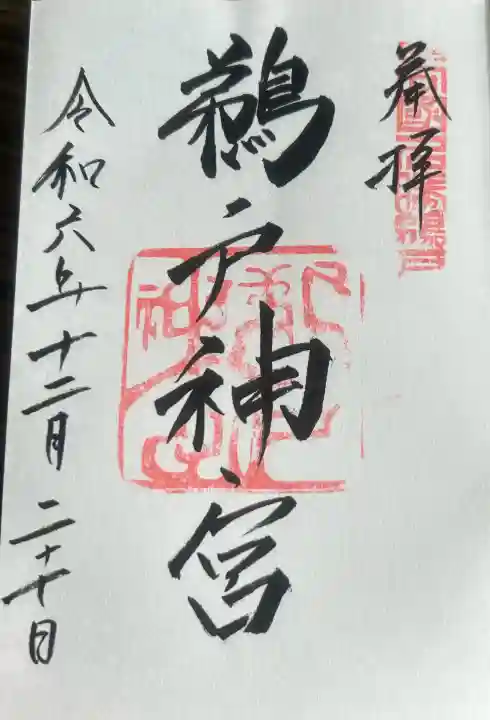 奉拝
鵜戸神宮
令和六年十二月二十日